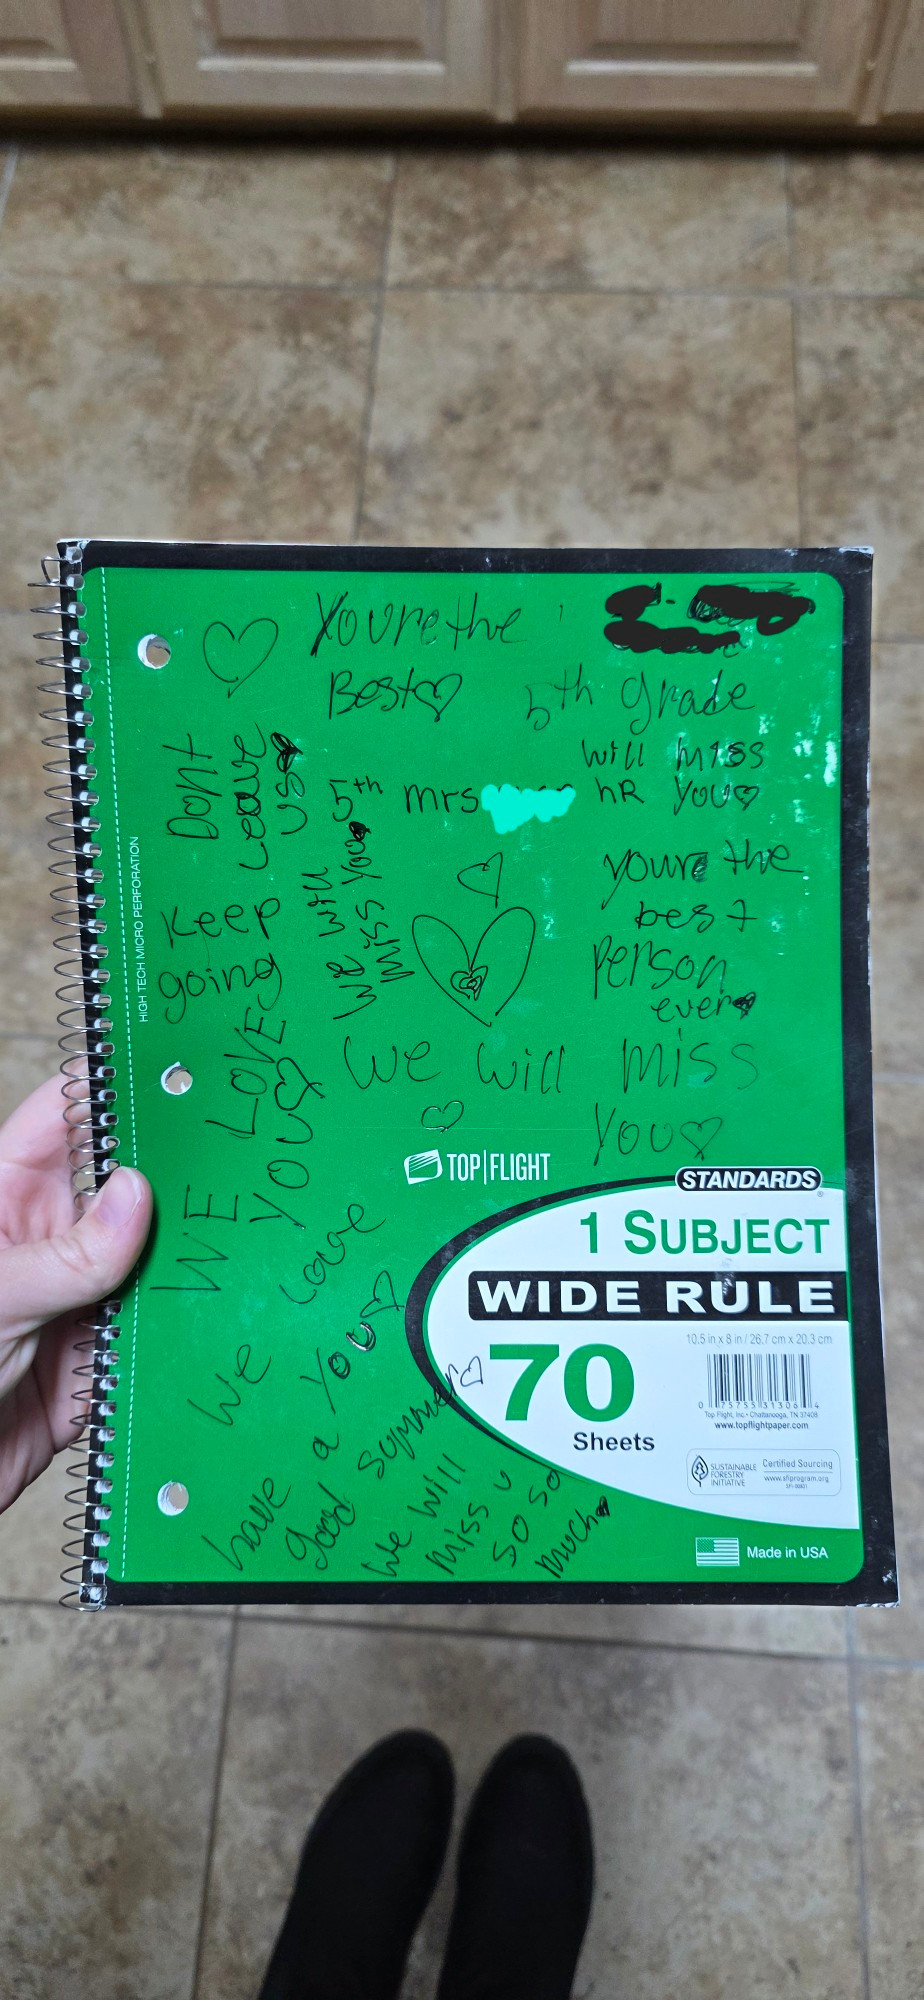 Youre the
Best♡
5th grade
will miss
mrs hR you♡
5th
We will
miss you
Dont
Leave
us
Keep
going
youre the
best
Person
ever
We will miss
You♡
WE LOVE
YOU♡
We Love
You♡
have a
good summer♡
We will
miss u
so so
much
HIGH TECH MICRO PERFORATION
TOP|FLIGHT
STANDARDS®
1 SUBJECT
WIDE RULE
10.5 in x 8 in / 26.7 cm x 20.3 cm
70
Sheets
0 75755 31306 4
Top Flight, Inc. • Chattanooga, TN 37409
www.topflightpaper.com
SUSTAINABLE
FORESTRY
INITIATIVE
Certified Sourcing
www.sfiprogram.org
Made in USA